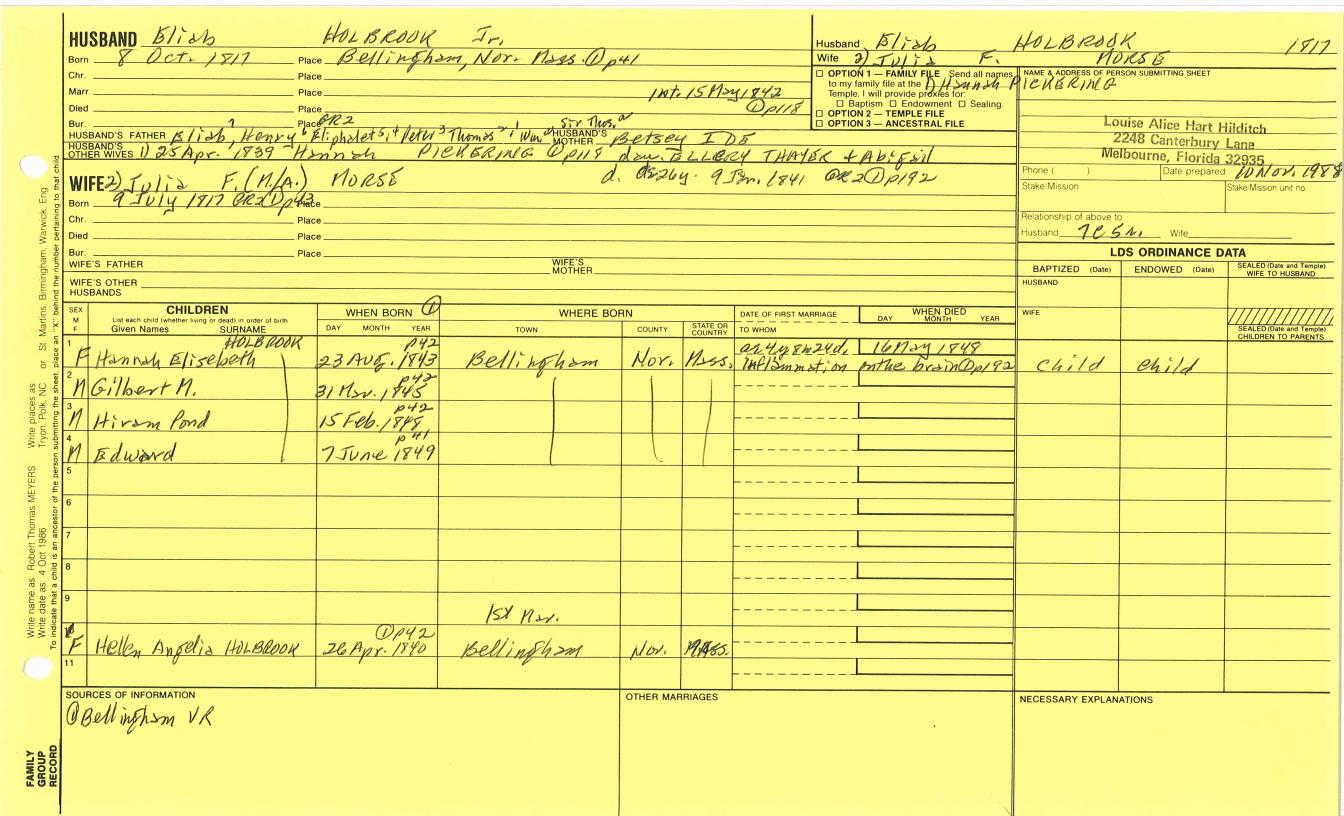 HUSBAND Eliab HOLBROOK Jr.
Born 8 Oct. 1817 Place Bellingham, Nor. Mass. ① p41
Chr. Place
Marr Place Int. 15 May 1842
Died Place ① p118
Bur. Place GR2
HUSBAND'S FATHER Eliab7, Henry6, Eliphalet5,4 Peter3 Thomas2,1 Wm.a Sir Thos.a HUSBAND'S MOTHER Betsey IDE
HUSBAND'S OTHER WIVES 1) 25 Apr. 1839 Hannah PICKERING ① p118 dau. ELLERY THAYER + Abigail
d. 9 Jan. 1841 GR2 ① p192
WIFE 2) Julia F. (M./A.) MORSE
Born 9 July 1817 GR2 ① p43 Place
Chr. Place
Died Place
Bur. Place
WIFE'S FATHER WIFE'S MOTHER
WIFE'S OTHER HUSBANDS
Husband Eliab HOLBROOK 1817
Wife 2) Julia F. MORSE
1) Hannah PICKERING
☐ OPTION 1 — FAMILY FILE Send all names
to my family file at the
Temple. I will provide proxies for:
☐ Baptism ☐ Endowment ☐ Sealing.
☐ OPTION 2 — TEMPLE FILE
☐ OPTION 3 — ANCESTRAL FILE
NAME & ADDRESS OF PERSON SUBMITTING SHEET
Louise Alice Hart Hilditch
2248 Canterbury Lane
Melbourne, Florida 32935
Phone ( ) Date prepared 10 Nov. 1988
Stake/Mission Stake/Mission unit no.
Relationship of above to
Husband 7C5R. Wife
LDS ORDINANCE DATA
BAPTIZED (Date) ENDOWED (Date) SEALED (Date and Temple) WIFE TO HUSBAND
HUSBAND
WIFE
SEALED (Date and Temple) CHILDREN TO PARENTS
SEX M F CHILDREN WHEN BORN ① WHERE BORN DATE OF FIRST MARRIAGE WHEN DIED
List each child (whether living or dead) in order of birth
Given Names SURNAME DAY MONTH YEAR TOWN COUNTY STATE OR COUNTRY TO WHOM DAY MONTH YEAR
1 F Hannah Elisebeth HOLBROOK 23 Aug. 1843 p42 Bellingham Nor. Mass. ae 4y 8m 24d. 16 May 1848
inflammation on the brain ① p192 Child Child
2 M Gilbert M. 31 Mar. 1845 p42
3 M Hiram Pond 15 Feb. 1848 p42
4 M Edward 7 June 1849 p41
5
6
7
8
9 1st Mar.
10 F Hellen Angelia HOLBROOK 26 Apr. 1840 ① p42 Bellingham Nor. MASS.
11
SOURCES OF INFORMATION OTHER MARRIAGES NECESSARY EXPLANATIONS
① Bellingham VR
FAMILY
GROUP
RECORD
Write name as Robert Thomas MEYERS Write places as Tryon, Polk, NC or St Martins, Birmingham, Warwick, Eng
Write date as 4 Oct 1986
To indicate that a child is an ancestor of the person submitting the sheet, place an "X" behind the number pertaining to that child